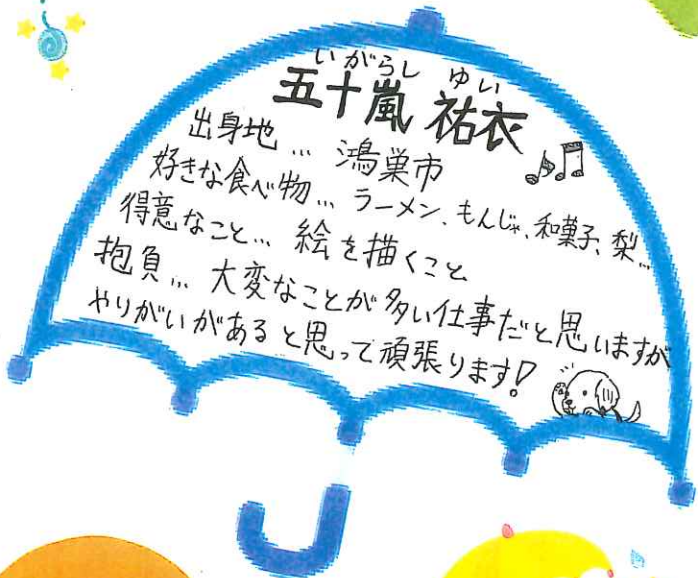 いがらし ゆい
五十嵐 祐衣
出身地… 鴻巣市
好きな食べ物… ラーメン、もんじゃ、和菓子、梨…
得意なこと… 絵を描くこと
抱負… 大変なことが多い仕事だと思いますが
やりがいがあると思って頑張ります!